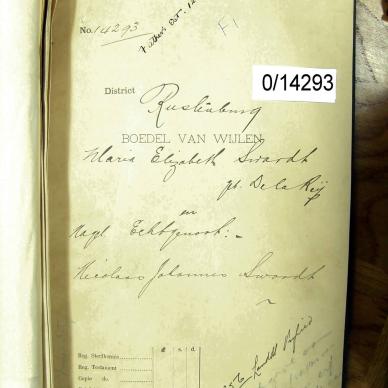 No. 14293
F1
0/14293
District Rustenburg
BOEDEL VAN WIJLEN
Maria Elizabeth Swardt
gb. De la Reij
en
nagl Echtgenoot:-
Nicolaas Johannes Swardt
£ s. d.
Reg. Sterfkennis
Reg. Testament
Copie do.